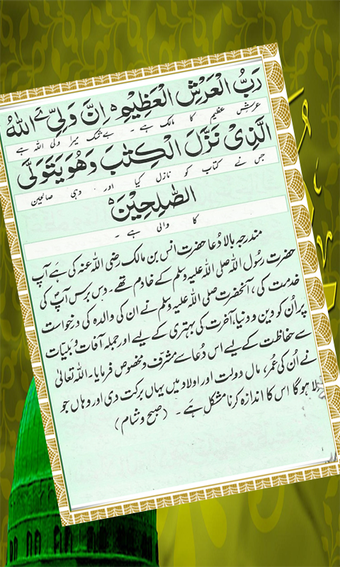 رَبُّ الْعَرْشِ الْعَظِيْمِ ہ اِنَّ وَلِيِّ ےَ اللهُ
عرش عظیم کا مالک ہے - بے شک میرا ولی اللہ ہے
الَّذِيْ نَزَّلَ الْكِتٰبَ وَهُوَ يَتَوَلَّى
جس نے کتاب کو نازل کیا اور وہی صالحین
الصّٰلِحِيْنَ ہ
کا والی ہے -
مندرجہ بالا دُعا حضرت انس بن مالک رضی اللہ عنہ کی ہے آپ
حضرت رسول اللہ صلی اللہ علیہ وسلم کے خادم تھے - دس برس آپ کی
خدمت کی ، آنحضرت صلی اللہ علیہ وسلم نے ان کی والدہ کی درخواست
پر اُن کو دین و دنیا، آخرت کی بہتری کے لیے اور جملہ آفات و بلیات
سے حفاظت کے لیے اس دُعا سے مشرف و مخصوص فرمایا - اللہ تعالیٰ
نے اُن کی عمر، مال دولت اور اولاد میں یہاں برکت دی اور وہاں جو
لا ہوگا اس کا اندازہ کرنا مشکل ہے - (صبح و شام)